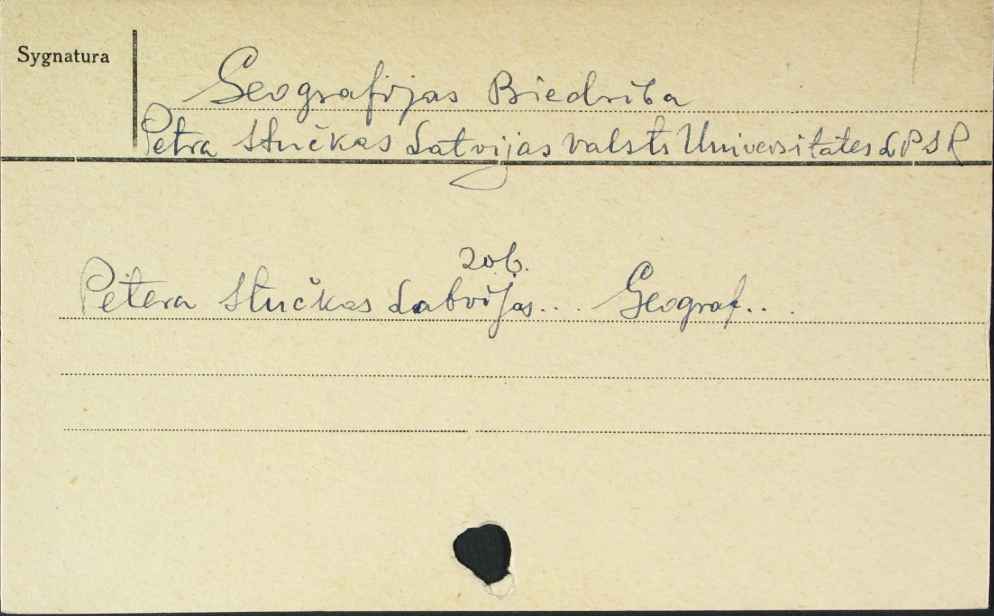 Sygnatura
Geografijas Biedrība
Petra Stučkas Latvijas valsts Universitates LPSR
zob.
Petera Stučkas Latvijas... Geograf...